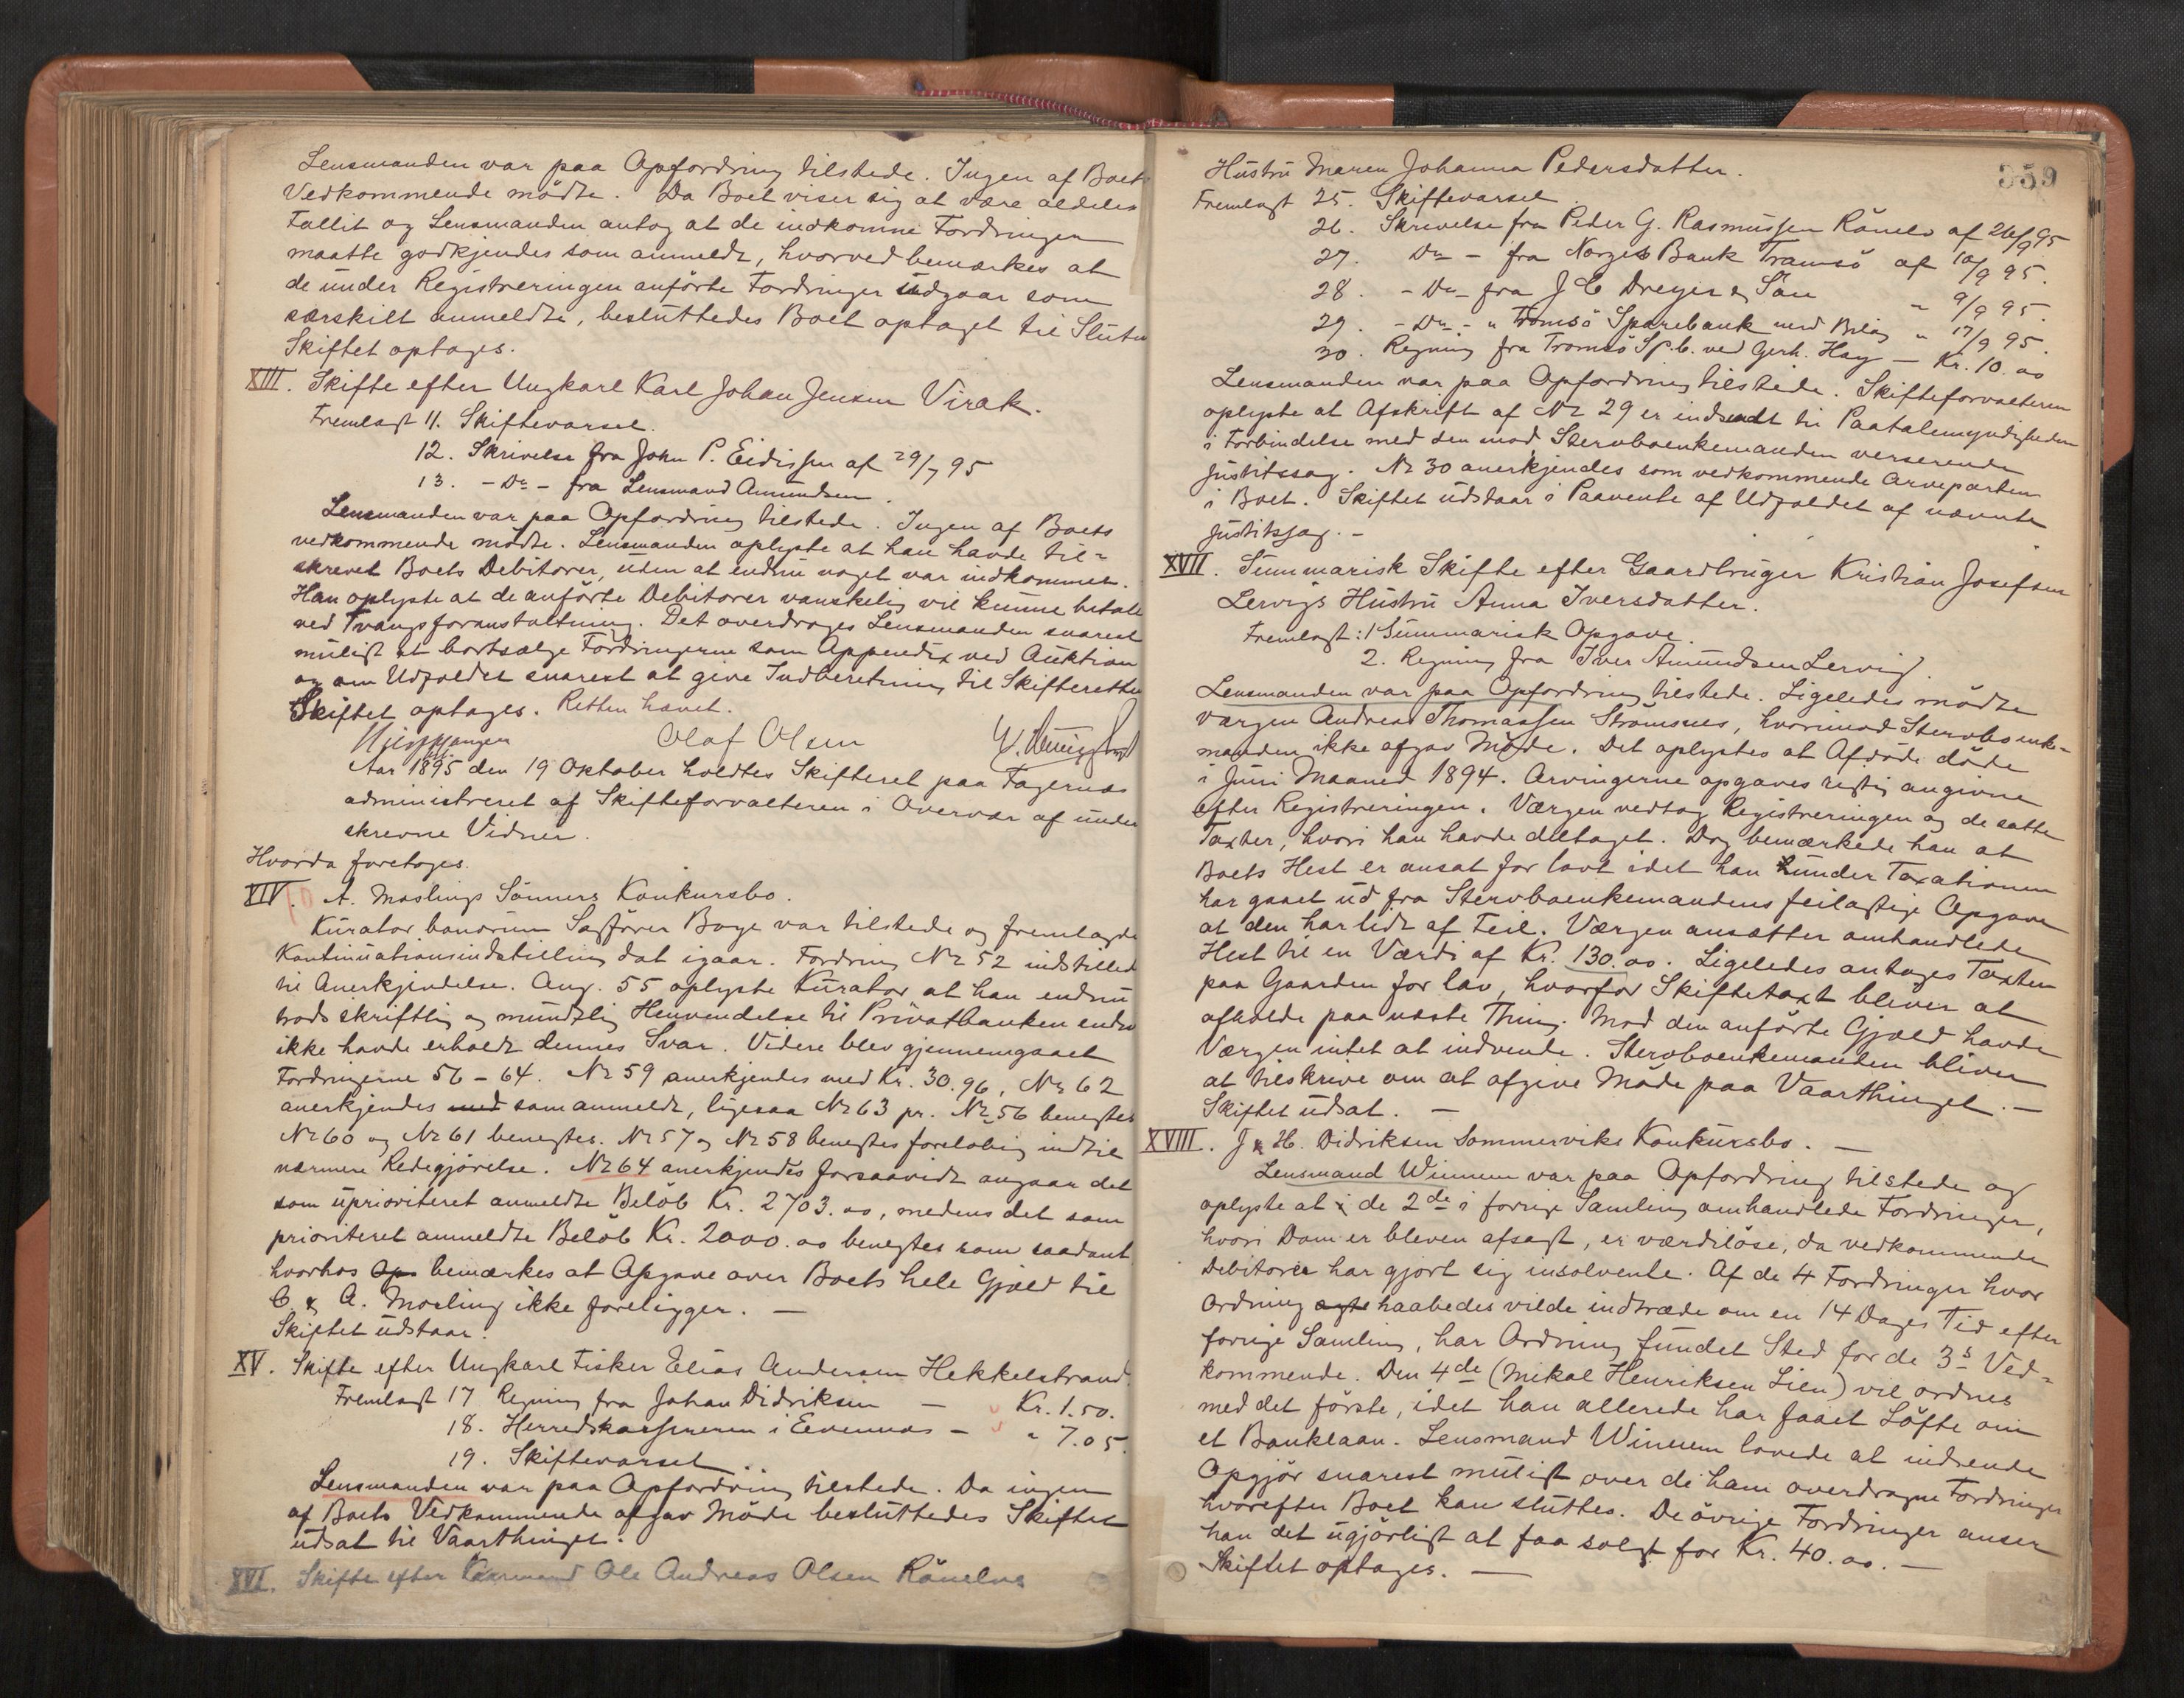 Lensmanden var paa Opfordring tilstede. Ingen af Boets
Vedkommende mödte. Da Boet viser sig at være aldeles
Fallit og Lensmanden antog at de indkomne Fordringer
maatte godkjendes som anmeldt, hvorved bemærkes at
de under Registreringen anförte Fordringer udgaar som
særskilt anmeldte, besluttedes Boet optaget til Slutn
Skiftet optages.
XIII. Skifte efter Ungkarl Karl Johan Jensen Virak.
Fremlagt 11. Skiftevarsel.
12. Skrivelse fra John P. Eidissen af 29/7 95
13. - Do - fra Lensmand Amundsen.
Lensmanden var paa Opfordring tilstede. Ingen af Boets
vedkommende mödte. Lensmanden oplyste at han havde til-
skrevet Boets Debitorer, uden at endnu noget var indkommet.
Han oplyste at de anförte Debitorer vanskelig vil kunne betale
ved Tvangsforanstaltning. Det overdrages Lensmanden snarest
muligst at bortsælge Fordringerne som Appendix ved Auktion
og om Udfaldet snarest at give Indberetning til Skifteretten
Skiftet optages. Retten hævet.
Olaf Olsen
Aar 1895 den 19 Oktober holdtes Skifteret paa Fagernæs
administreret af Skifteforvalteren i Overvær af under
skrevne Vidner.
Hvorda foretoges.
XIV. A. Moslings Sönners Konkursbo.
Kurator bonorum Sagförer Boye var tilstede og fremlagde
Kontinuationsindstilling dat igaar. Fordring No 52 indstilled
til Anerkjendelse. Ang. 55 oplyste Kurator at han endnu
trods skriftlig og mundtlig Henvendelse til Privatbanken endnu
ikke havde erholdt dennes Svar. Videre blev gjennemgaaet
Fordringerne 56 - 64. No 59 anerkjendes med Kr. 30.96, No 62
anerkjendes med som anmeldt, ligesaa No 63 pr. No 56 benegtes
No 60 og No 61 benegtes. No 57 og No 58 benegtes forelöbig indtil
nærmere Redegjörelse. No 64 anerkjendes forsaavidt angaar det
som uprioriteret anmeldte Belöb Kr. 2703.00, medens det som
prioriteret anmeldte Belöb Kr. 2000.00 benegtes som saadant
hvorhos Op bemærkes at Opgave over Boets hele Gjæld til
C. & A. Mosling ikke foreligger. —
Skiftet udstaar.
XV. Skifte efter Ungkarl Fisker Elias Andersen Hekkelstrand.
Fremlagt 17 Regning fra Johan Didriksen — Kr. 1.50.
18. Herredskassereren i Evennæs - " 7.05.
19. Skiftevarsel.
Lensmanden var paa Opfordring tilstede. Da ingen
af Boets Vedkommende afgav Möde besluttedes Skiftet
udsat til Vaarthinget.
XVI. Skifte efter Kaarmand Ole Andreas Olsen Rånelvs
359
Hustru Maren Johanna Pedersdatter.
Fremlagt 25. Skiftevarsel
26. Skrivelse fra Peder G. Rasmussen Rånelv af 26/9 95
27. Do - fra Norges Bank Tromsö af 10/9 95.
28. - Do - fra J C Dreyer & Sön " 9/9 95.
29. - Do - " Tromsö Sparebank med Bilag " 17/9 95.
30. Regning fra Tromsö Sp.b. ved Gerh. Hay — Kr. 10.00
Lensmanden var paa Opfordring tilstede. Skifteforvalteren
oplyste at Afskrift af No 29 er indsendt til Paatalemyndigheden
i Forbindelse med den mod Stervboenkemanden verserende
Justitssag. No 30 anerkjendes som vedkommende Arveparten
i Boet. Skiftet udstaar i Paavente af Udfaldet af nævnte
Justitssag. -
XVII. Summarisk Skifte efter Gaardbruger Kristian Josefsen
Lervigs Hustru Anna Iversdatter.
Fremlagt: 1 Summarisk Opgave.
2. Regning fra Iver Amundsen Lervig.
Lensmanden var paa Opfordring tilstede. Ligeledes mödte
værgen Andreas Thomassen Strömsnes, hvorimod Stervboenke-
manden ikke afgav Möde. Det oplystes at Afdöde döde
i Juni Maaned 1894. Arvingerne opgaves rigtig angivne
efter Registreringen. Værgen vedtog Registreringen og de satte
Taxter, hvori han havde deltaget. Dog bemærkede han at
Boets Hest er ansat for lavt idet han under Taxationen
har gaaet ud fra Stervboenkemandens feilagtige Opgave
at den har lidt af Feil. Værgen ansætter omhandlede
Hest til en Værdi af Kr. 130.00. Ligeledes antages Taxten
paa Gaarden for lav, hvorfor Skiftetaxt bliver at
afholde paa næste Thing. Mod den anförte Gjæld havde
Værgen intet at indvende. Stervboenkemanden bliver
at tilskrive om at afgive Möde paa Vaarthinget. —
Skiftet udsat. —
XVIII. J & H. Didriksen Sommerviks Konkursbo. —
Lensmand Winnem var paa Opfordring tilstede og
oplyste at i de 2de i forrige Samling omhandlede Fordringer,
hvori Dom er bleven afsagt, er værdilöse, da vedkommende
Debitorer har gjort sig insolvente. Af de 4 Fordringer hvor
Ordning haabedes vilde indtræde om en 14 Dages Tid efter
forrige Samling, har Ordning fundet Sted for de 3s Ved-
kommende. Den 4de (Mikal Henriksen Lien) vil ordnes
med det förste, idet han allerede har faaet Löfte om
et Banklaan. Lensmand Winnem lovede at indsende
Opgjör snarest muligst over de ham overdragne Fordringer
hvorefter Boet kan sluttes. De övrige Fordringer anser
han det ugjörligt at faa solgt for Kr. 40.00. —
Skiftet optages. —